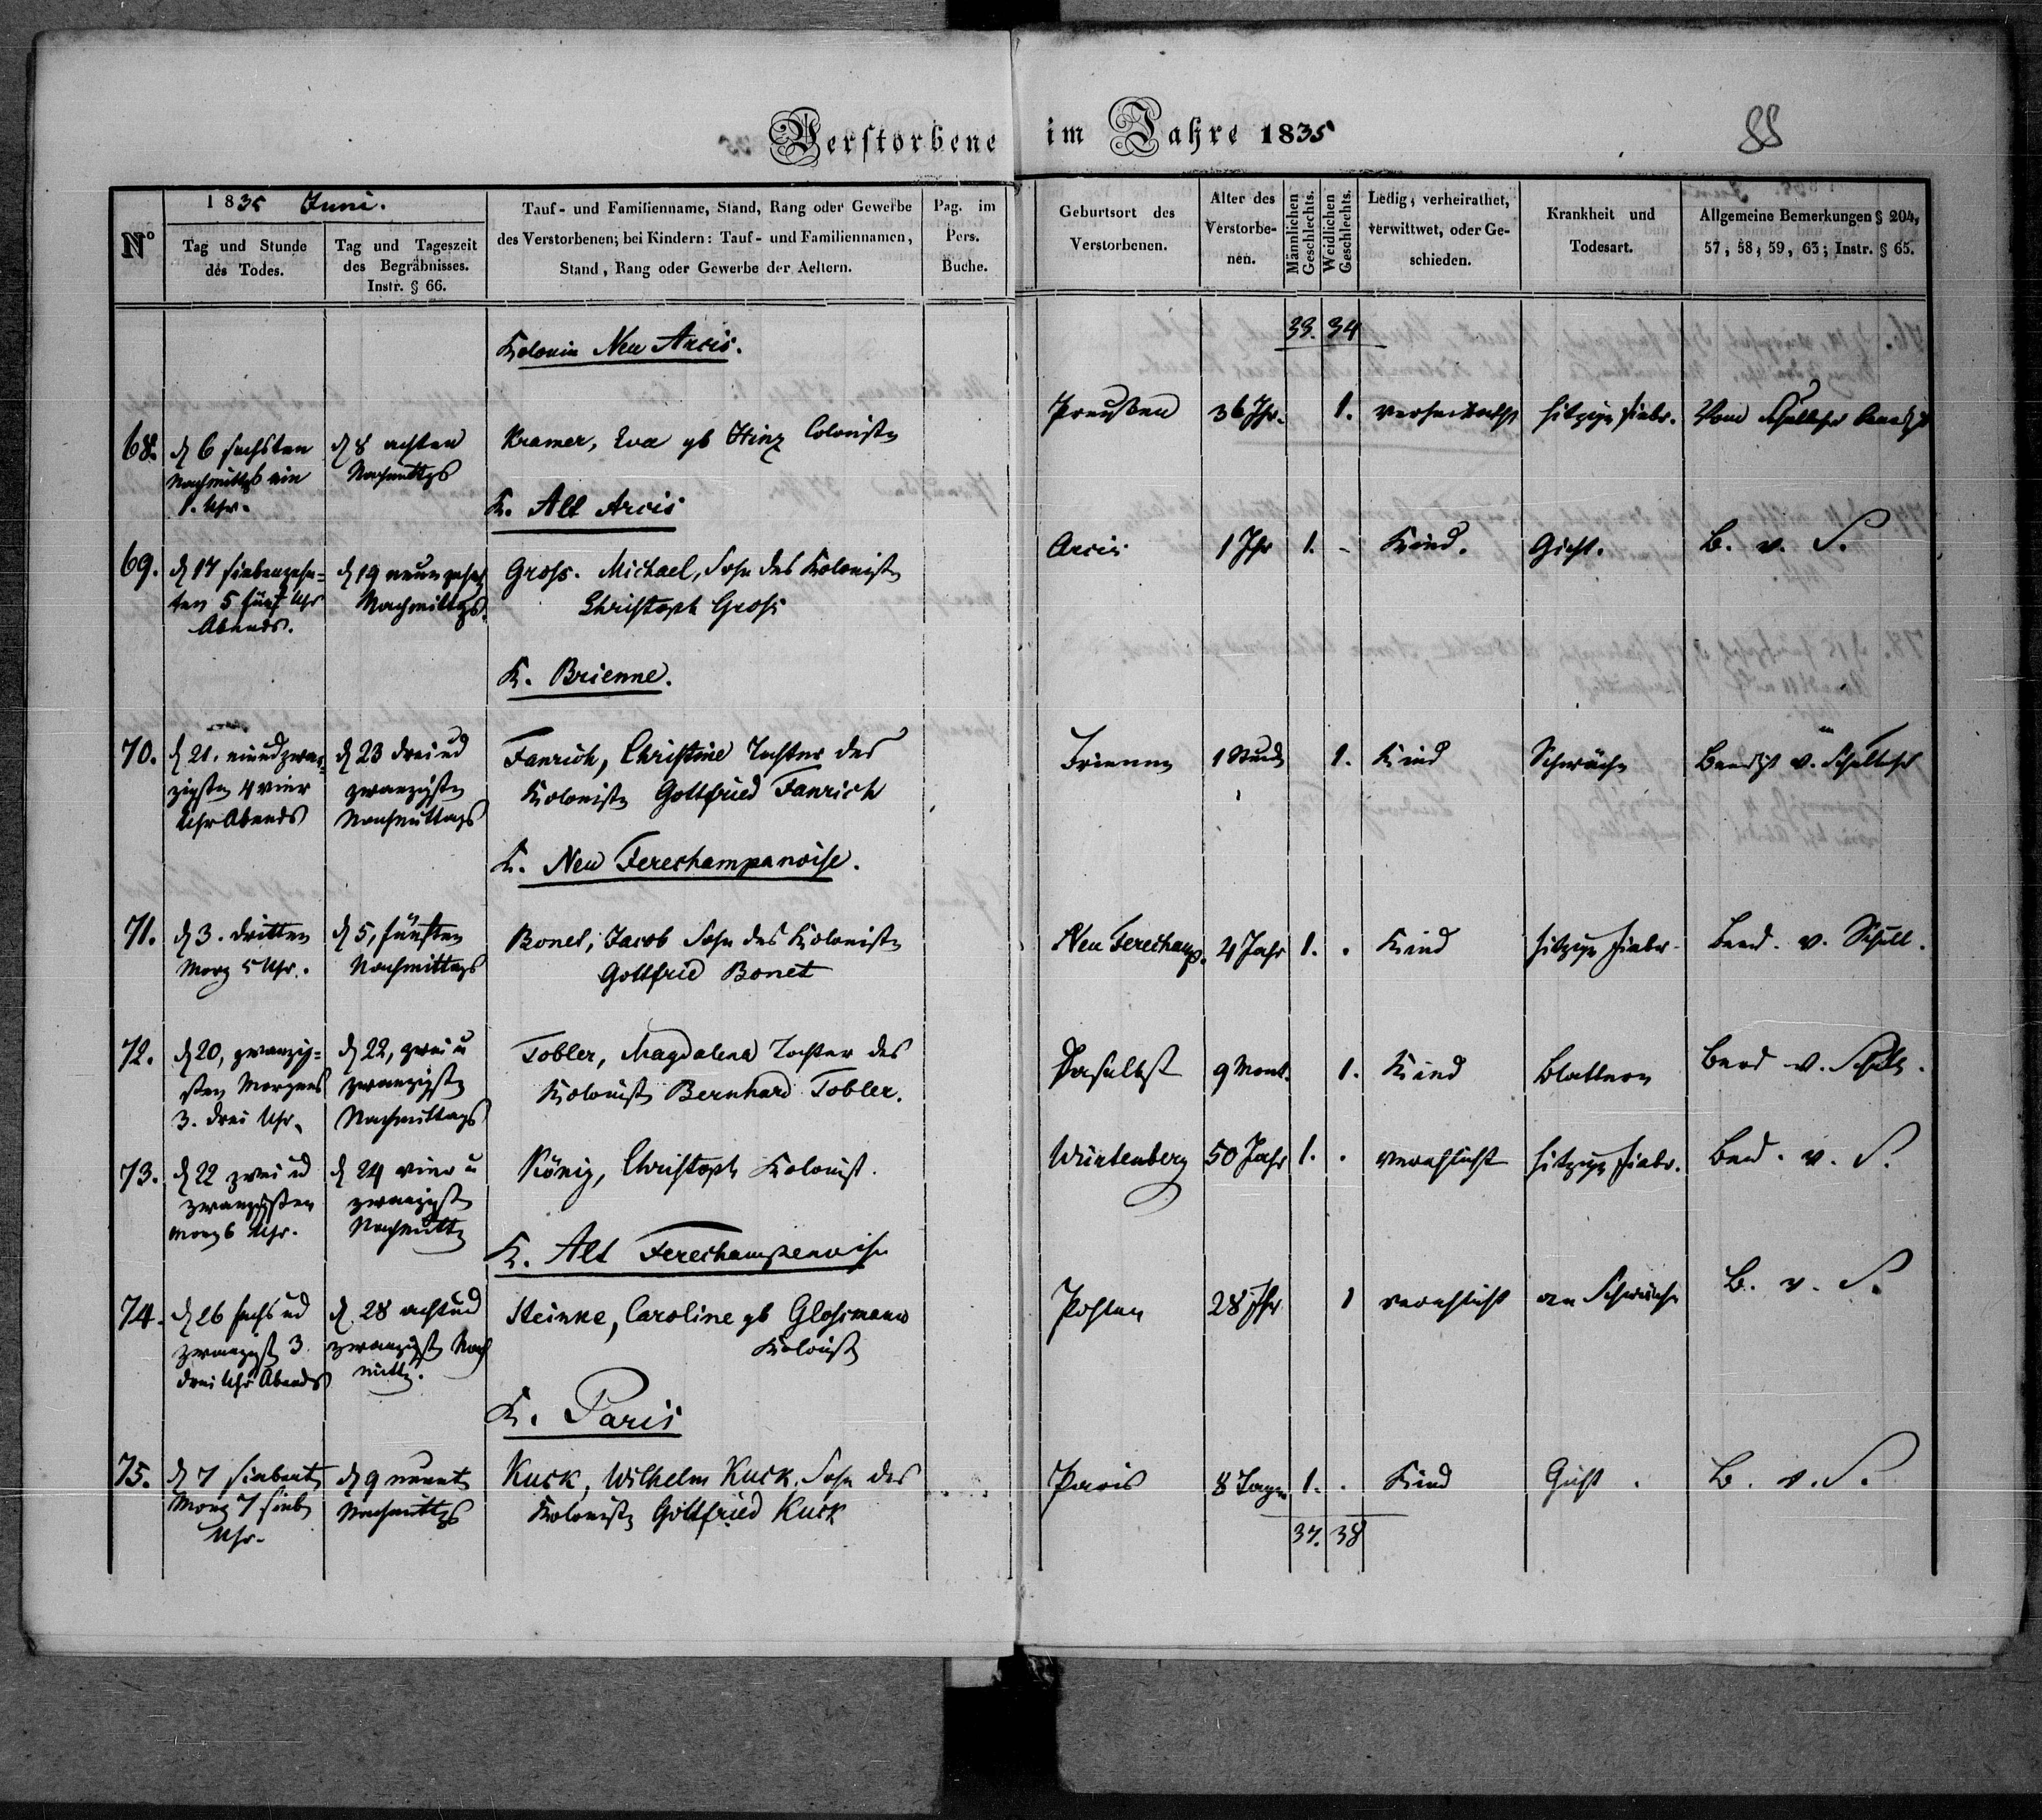 Verstorbene im Jahre 1835
88
Nº
1835 Juni.
Tag und Stunde
des Todes.
Tag und Tageszeit
des Begräbnisses.
Instr. § 66.
Tauf- und Familienname, Stand, Rang oder Gewerbe
des Verstorbenen; bei Kindern: Tauf- und Familiennamen,
Stand, Rang oder Gewerbe der Aeltern.
Pag. im
Pers.
Buche.
Geburtsort des
Verstorbenen.
Alter des
Verstorbe-
nen.
Männlichen
Geschlechts.
Weiblichen
Geschlechts.
Ledig, verheirathet,
verwittwet, oder Ge-
schieden.
Krankheit und
Todesart.
Allgemeine Bemerkungen § 204,
57, 58, 59, 63; Instr. § 65.
33. 34
Kolonie Neu Arcis.
68.
d 6 sechsten
Nachmittgs ein
1. Uhr.
d 8 achten
Nachmittgs
Kramer, Eva gb Hinz Colonistn
Preußen
36 Jhr.
1.
verheirathet
hitzige Fieber.
Vom Schullehr beerdgt
K. Alt Arcis
69.
d 17 siebenzehn=
ten 5 fünf Uhr
Abends.
d 19 neunzehnt
Nachmittgs.
Gross. Michael, Sohn des Kolonistn
Christoph Gross
Arcis
1 Jhr
1.
-
Kind.
Gicht.
B. v. S.
K. Brienne.
70.
d 21. einundzwan-
zigsten 4 vier
Uhr Abends
d 23 drei ud
zwanzigstn
Nachmittags
Fanrich, Christine Tochter des
Kolonistn Gottfried Fanrich
Brienne
1 Stund
1.
Kind
Schwäche
Beerdgt v. Schullehr
K. Neu Ferechampanoise.
71.
d 3. dritten
Morg 5 Uhr.
d 5, fünften
Nachmittags
Bonet, Jacob Sohn des Kolonistn
Gottfried Bonet
Neu Ferechamp.
4 Jahr
1.
.
Kind
hitzige Fieber.
Beerd. v. Schull.
72.
d 20, zwanzig=
sten Morgens
3. drei Uhr.
d 22, zwei u
zwanzigstn
Nachmittags
Tobler, Magdalena Tochter des
Kolonistn Bernhard Tobler.
Daselbst
9 Mont.
1.
Kind
Blattern
Beerd v. Schull.
73.
d 22 zwei ud
zwanzigsten
Morg 6 Uhr.
d 24 vier u
zwanzigstn
Nachmittg
König, Christoph Kolonist.
Würtenberg
50 Jahr
1.
.
verehlicht
hitzige Fieber.
Beerd. v. S.
K. Alt Ferechampenoise
74.
d 26 sechs ud
zwanzigst 3.
drei Uhr Abends
d. 28 achtud
zwanzigstn Nach
mittg.
Steinke, Caroline gb Glossmann
Kolonistn
Pohlen
28 Jhr
1
verehlicht
an Schwäche
B. v. S.
K. Paris
75.
d 7 siebent
Morg 7 sieb
Uhr.
d 9 neunt
Nachmittgs
Kuck, Wilhelm Kuck, Sohn des
Kolonistn Gottfried Kuck
Paris
8 Tage
1.
.
Kind
Gicht.
B. v. S.
37. 38